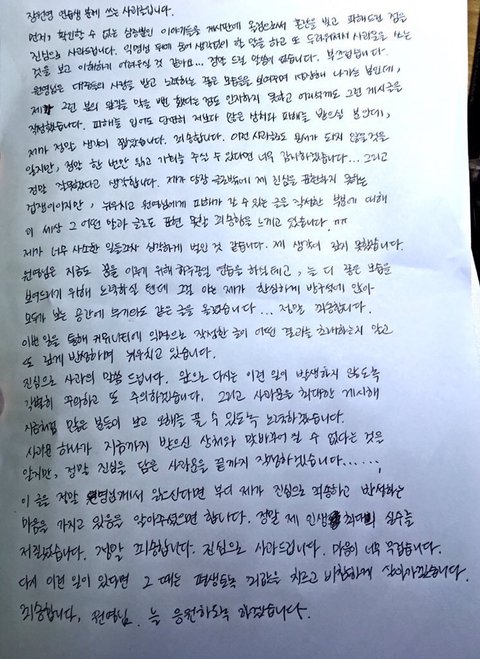 장원영 연습생 분께 쓰는 사과문입니다.
먼저, 확인할 수 없는 심층별인 이야기들을 게시판에 옮김으로써 혼란을 빚고 피해드린 점을
진심으로 사과드립니다. 익명성 뒤에 숨어 생각없이 할 말을 하고 또 두려워져서 사과문을 쓰는
것을 보고 이해하기 어려우실 것 같아요... 정말 드릴 말씀이 없습니다. 부끄럽습니다.
원영님은 대중들의 사랑을 받고 노력하는 좋은 모습들을 보여주며 성장해 나가는 분인데,
제가 그런 분의 앞길을 막는 뻔했다는 점도 인지하지 못하고 어리석게도 그런 게시글을
작성했습니다. 피해를 입어도 당연히 저보다 많은 상처와 피해를 받으실 분인데,
제가 정말 생각이 짧았습니다. 죄송합니다. 이런 사과로도 용서가 되지 않을 것을
알지만, 정말 한 번만 믿고 기회를 주실 수 있다면 너무 감사하겠습니다... 그리고
정말 잘못했다고 생각합니다. 제가 당장 글로밖에 제 진심을 표현하지 못하는
겁쟁이이지만, 뉘우치고 원영님에게 피해가 갈 수 있는 글을 작성한 점에 대해
이 세상 그 어떤 말과 글로도 표현 못할 죄송함을 느끼고 있습니다. ㅠㅠ
제가 너무 사소한 일들조차 심각하게 벌인 것 같습니다. 제 생각이 깊지 못했습니다.
원영님은 지금도 꿈을 이루기 위해 하루종일 연습을 하실테고, 늘 더 좋은 모습을
보여드리기 위해 노력하실 텐데 그걸 아는 제가 한심하게 방구석에 앉아
모두가 보는 공간에 무기와도 같은 글을 올렸습니다... 정말 죄송합니다.
이번 일을 통해 커뮤니티에 익명으로 작성한 글이 어떤 결과를 초래하는지 알고
또 깊게 반성하며 뉘우치고 있습니다.
진심으로 사과의 말씀 드립니다. 앞으로 다시는 이런 일이 발생하지 않도록
각별히 주의하고 또 주의하겠습니다. 그리고 사과문을 최대한 게시해
지금처럼 많은 분들이 보고 오해를 풀 수 있도록 노력하겠습니다.
사과문 하나가 지금까지 받으신 상처와 맞바꾸어질 수 없다는 것은
알지만, 정말 진심을 담은 사과문을 끝까지 작성하겠습니다......,
이 글을 정말 원영님께서 읽으신다면 부디 제가 진심으로 죄송하고 반성하는
마음을 가지고 있음을 알아주셨으면 합니다. 정말 제 인생 최대의 실수를
저질렀습니다. 정말 죄송합니다. 진심으로 사과드립니다. 마음이 너무 무겁습니다.
다시 이런 일이 있다면 그 때는 평생토록 죗값을 치르고 비참하게 살아가겠습니다.
죄송합니다, 원영님. 늘 응원하도록 하겠습니다.